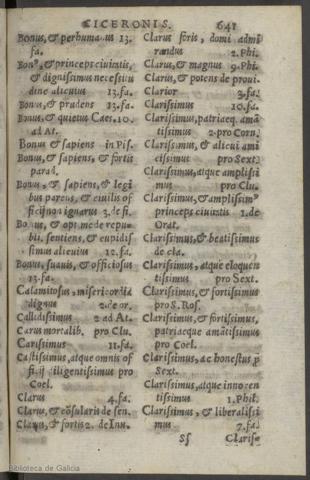 CICERONIS. 641
Bonus, & perhumanus 13.
fa.
Bonꝰ, & princeps ciuitatis,
& dignissimus necessitu
dine alicuius 13.fa.
Bonus, & prudens 13.fa.
Bonus, & quietus Caes. 10.
ad At.
Bonus & sapiens in Pis.
Bonus, & sapiens, & fortis
parad.
Bonus, & sapiens, & legi
bus parens, & ciuilis of
ficij non ignarus 3. de fi.
Bonus, & opt. me de repu-
bli. sentiens, & cupidis
simus alicuius 12.fa.
Bonus, suauis, & officiosus
13.fa.
Calamitosus, misericordia
dignus 2. de or.
Callidissimus 2 ad At.
Carus mortalib. pro Clu.
Carissimus 11.fa.
Castissimus, atque omnis of
ficij diligentissimus pro
Coel.
Clarus 4.fa.
Clarus, & cõsularis de sen.
Clarus, & fortis 2. de Inu.
Clarus foris, domi admi
randus 2.Phi.
Clarus, & magnus 9.Phi.
Clarus, & potens de proui.
Clarior 3.fa.
Clarissimus 10.fa.
Clarissimus, patriaeq. amã
tissimus 2. pro Corn.
Clarissimus, & alicui ami
cissimus pro Sext.
Clarissimus, atque amplissi
mus pro Clu.
Clarissimus, & amplissimꝰ
princeps ciuitatis 1. de
Orat.
Clarissimus, & beatissimus
de cla.
Clarissimus, atque eloquen
tissimus pro Sext.
Clarissimus, & fortissimus
pro S. Ros.
Clarissimus, & fortissimus,
patriaeque amãtissimus
pro Coel.
Clarissimus, ac honestus p
Sext.
Clarissimus, atque innocen
tissimus 1. Phil.
Clarissimus, & liberalissi
mus 7.fa.
Sſ Clariss-
Biblioteca de Galicia